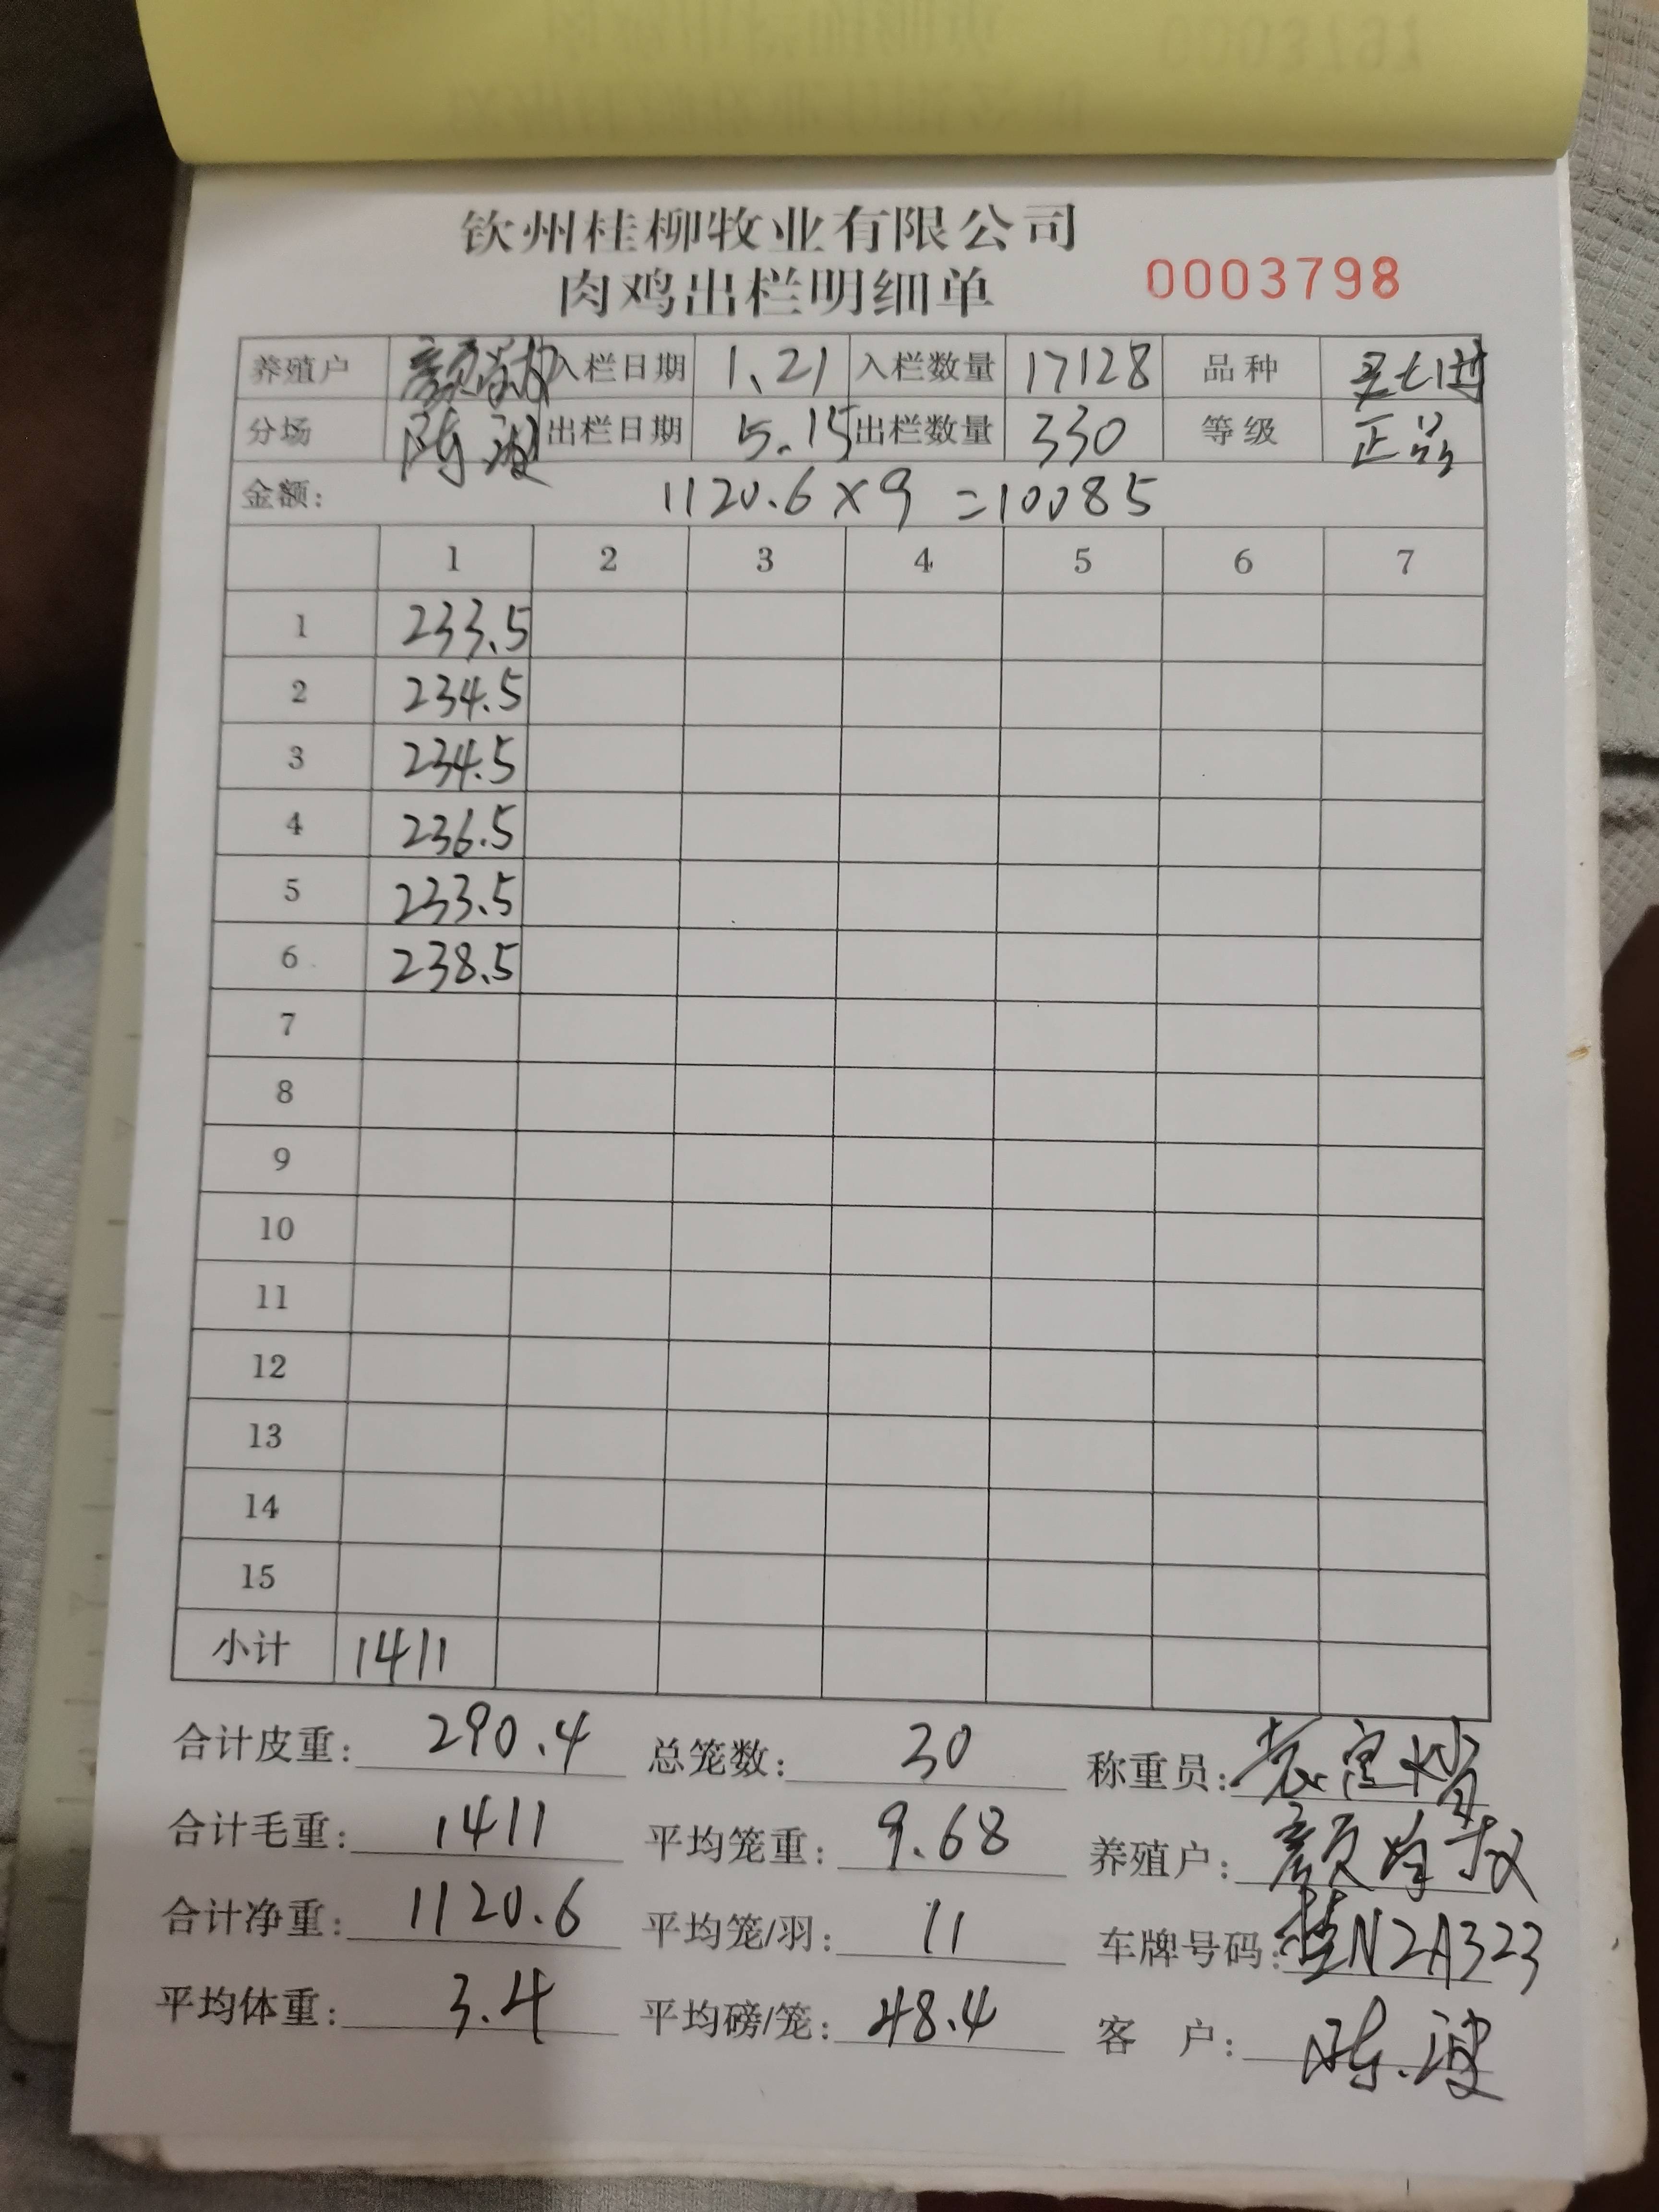 钦州桂柳牧业有限公司
肉鸡出栏明细单 0003798
养殖户 颜 入栏日期 1.21 入栏数量 17128 品种
分场 陈波 出栏日期 5.15 出栏数量 330 等级 正品
金额: 1120.6×9=10085
1 2 3 4 5 6 7
1 233.5
2 234.5
3 234.5
4 236.5
5 233.5
6 238.5
7
8
9
10
11
12
13
14
15
小计 1411
合计皮重: 290.4 总笼数: 30 称重员:
合计毛重: 1411 平均笼重: 9.68 养殖户: 颜
合计净重: 1120.6 平均笼/羽: 11 车牌号码: 桂N2A323
平均体重: 3.4 平均磅/笼: 48.4 客户: 陈波